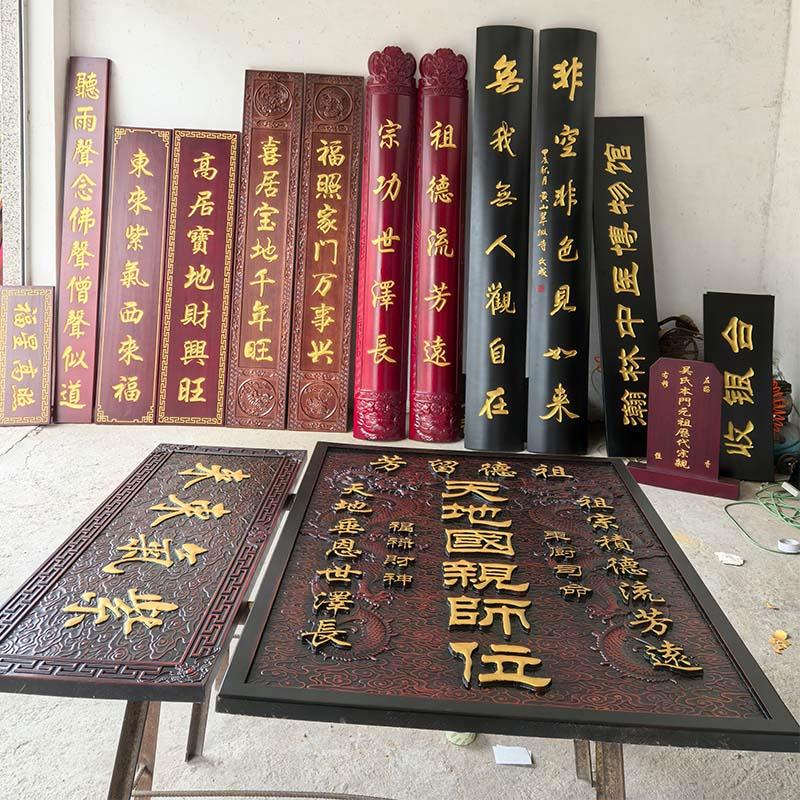 福星高
聽雨聲念佛聲僧聲似道
東來紫氣西來福
高居寶地財興旺
喜居宝地千年旺
福照家门万事兴
宗功世澤長
祖德流芳遠
無我無人觀自在
非空非色見如来
瀚林中医博物馆
收银台
左昭
吴氏本門元祖歷代宗親
右穆
紫氣東來
祖德留芳
祖宗積德流芳遠
東廚司命
天地國親師位
福祿財神
天地垂恩世澤長